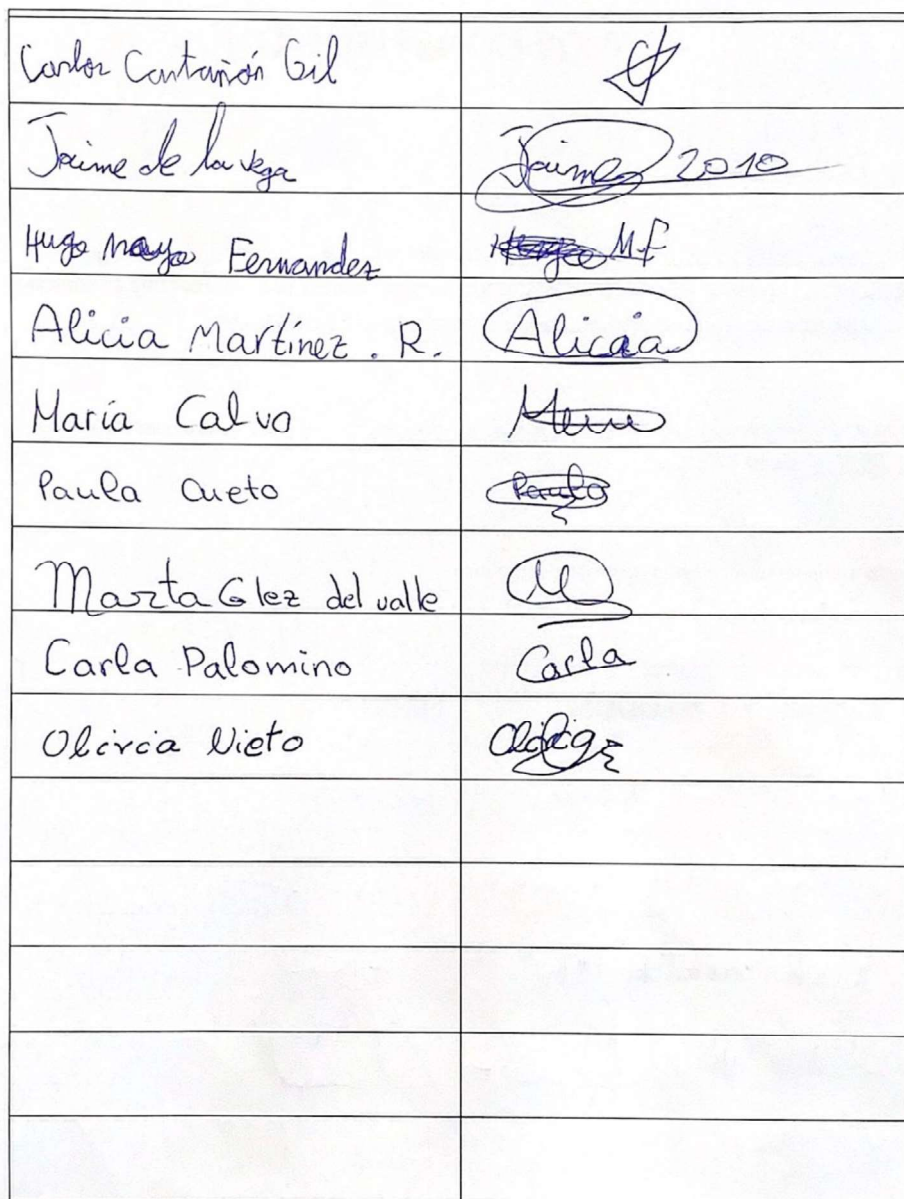 Carlos Castañón Gil
Jaime de la vega Jaime 2010
Hugo mayo Fernandez Hugo M.f
Alicia Martínez . R. Alicia
María Calvo
Paula Cueto Paula
Marta Glez del valle M
Carla Palomino Carla
Olivia Nieto